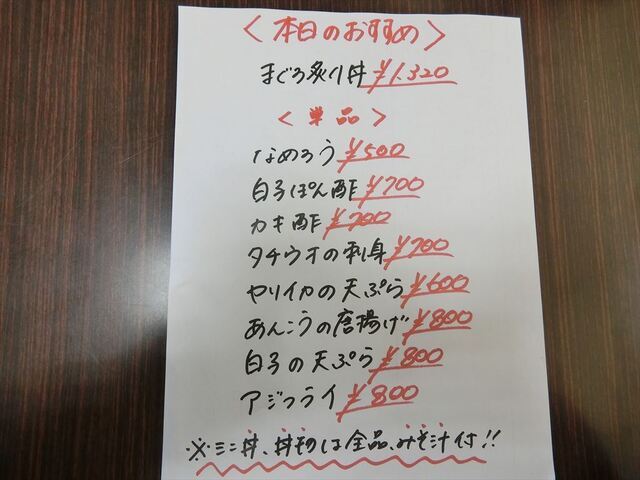 <本日のおすすめ>
まぐろ炙り丼 ¥1,320
<単品>
なめろう ¥500
白子ぽん酢 ¥700
カキ酢 ¥700
タチウオの刺身 ¥700
ヤリイカの天ぷら ¥600
あんこうの唐揚げ ¥800
白子の天ぷら ¥800
アジフライ ¥800
※ミニ丼、丼ものは全品、みそ汁付!!